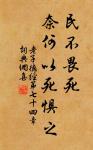 民不畏死
奈何以死惧之
老子道德经第七十四章
词典网